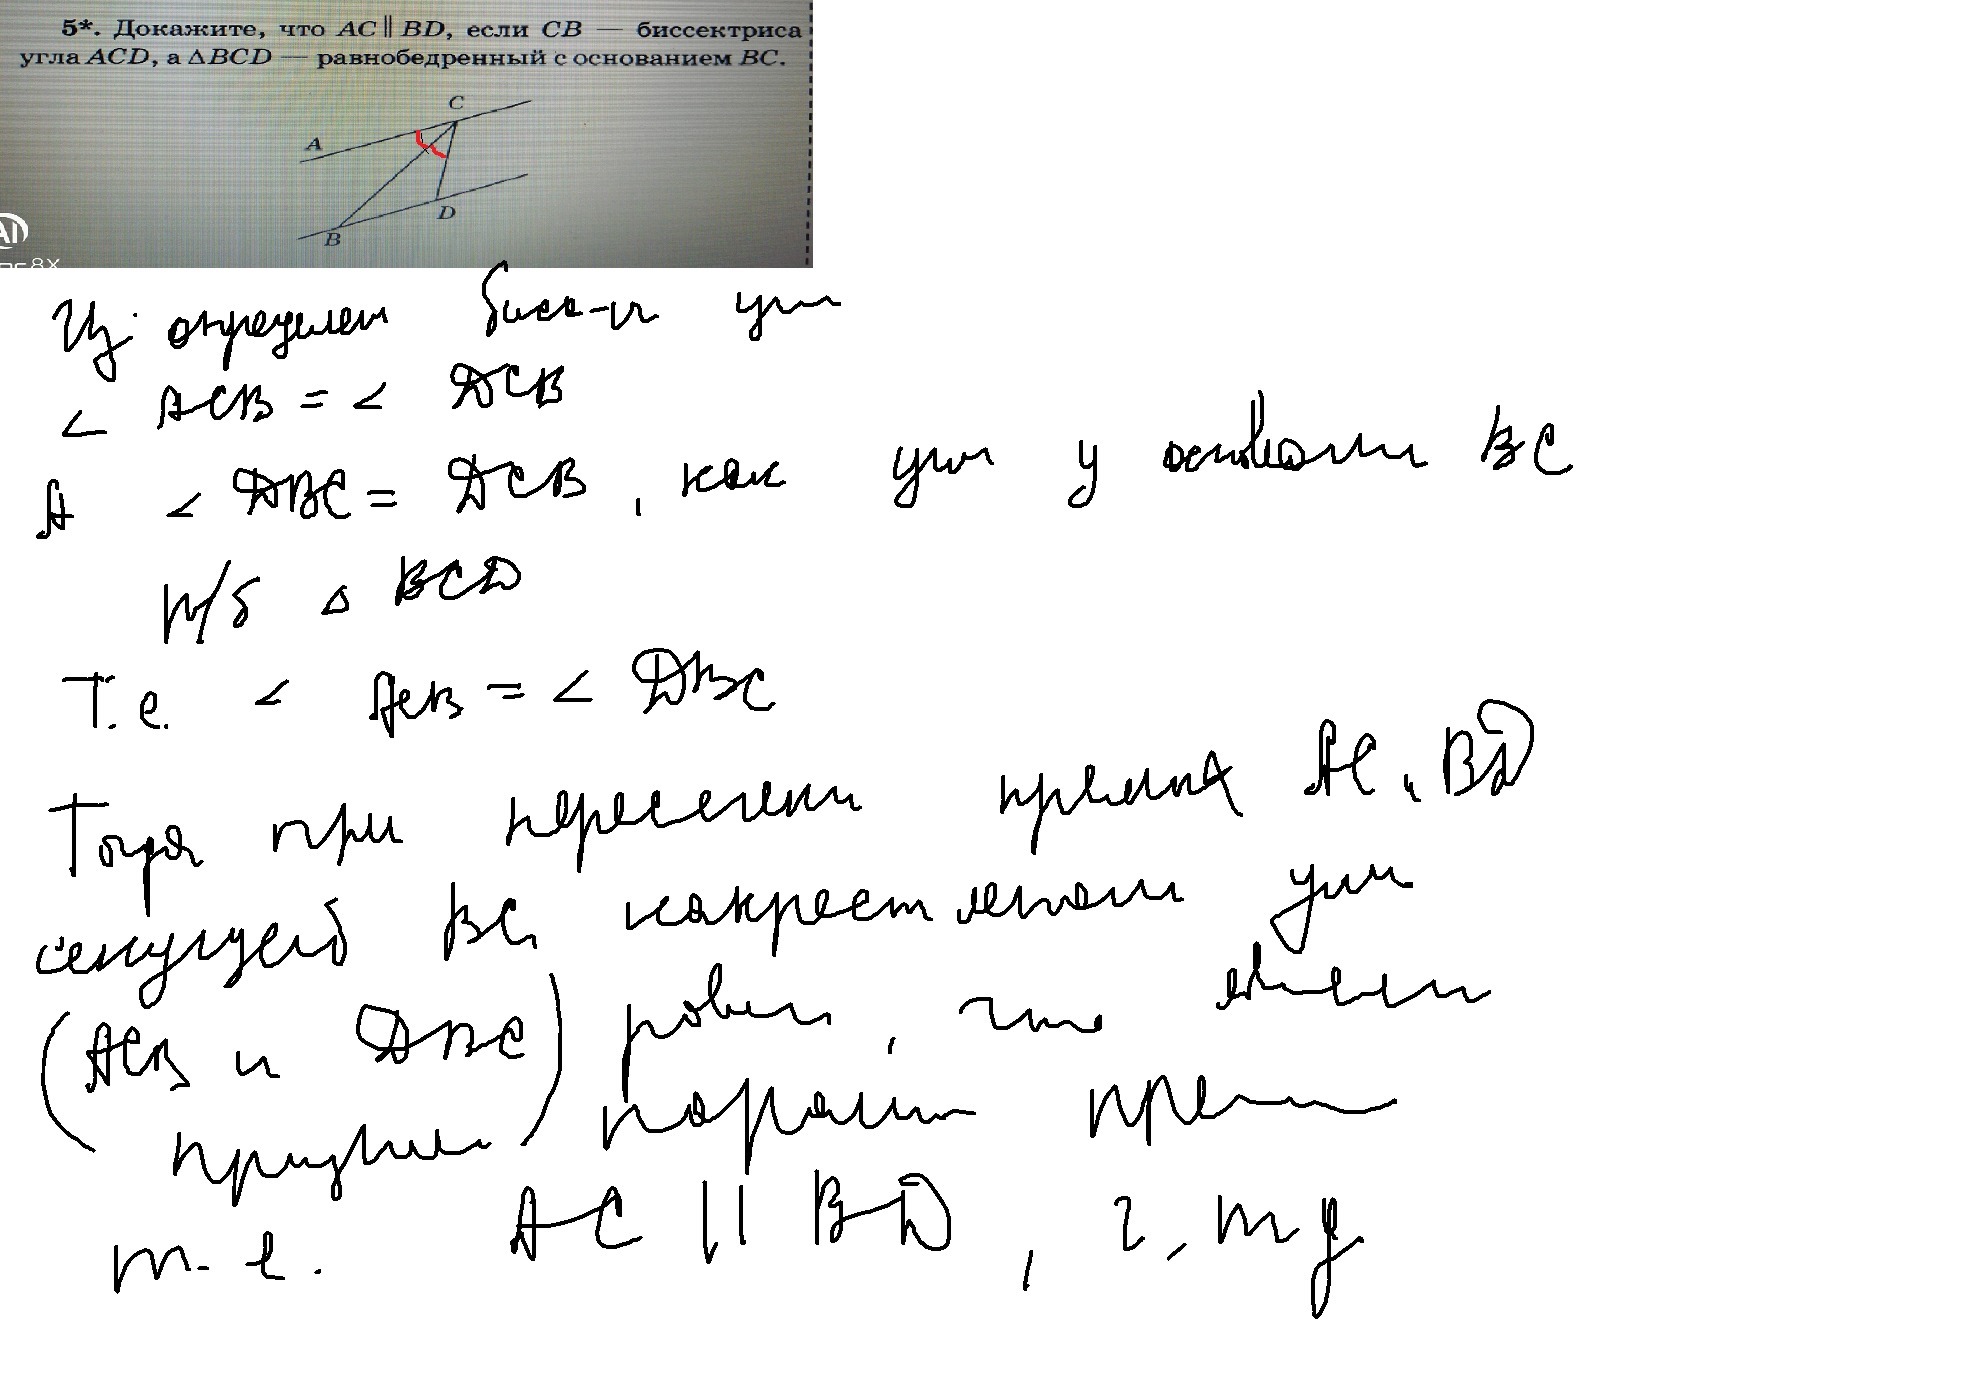 5*. Докажите, что AC ∥ BD, если CB — биссектриса
угла ACD, а △BCD — равнобедренный с основанием BC.
C
A
D
B
AI
8X
Из определен бисс-и угл
< ACB = < DCB
А < DBC = DCB, как угл у основани BC
р/б △ BCD
Т.е. < ACB = < DBC
Тогда при пересечени прямых AC и BD
секущей BC накрест лежащи углы
(ACB и DBC) равн, что являет
признак параллел прям
т.е. AC || BD, ч.тд